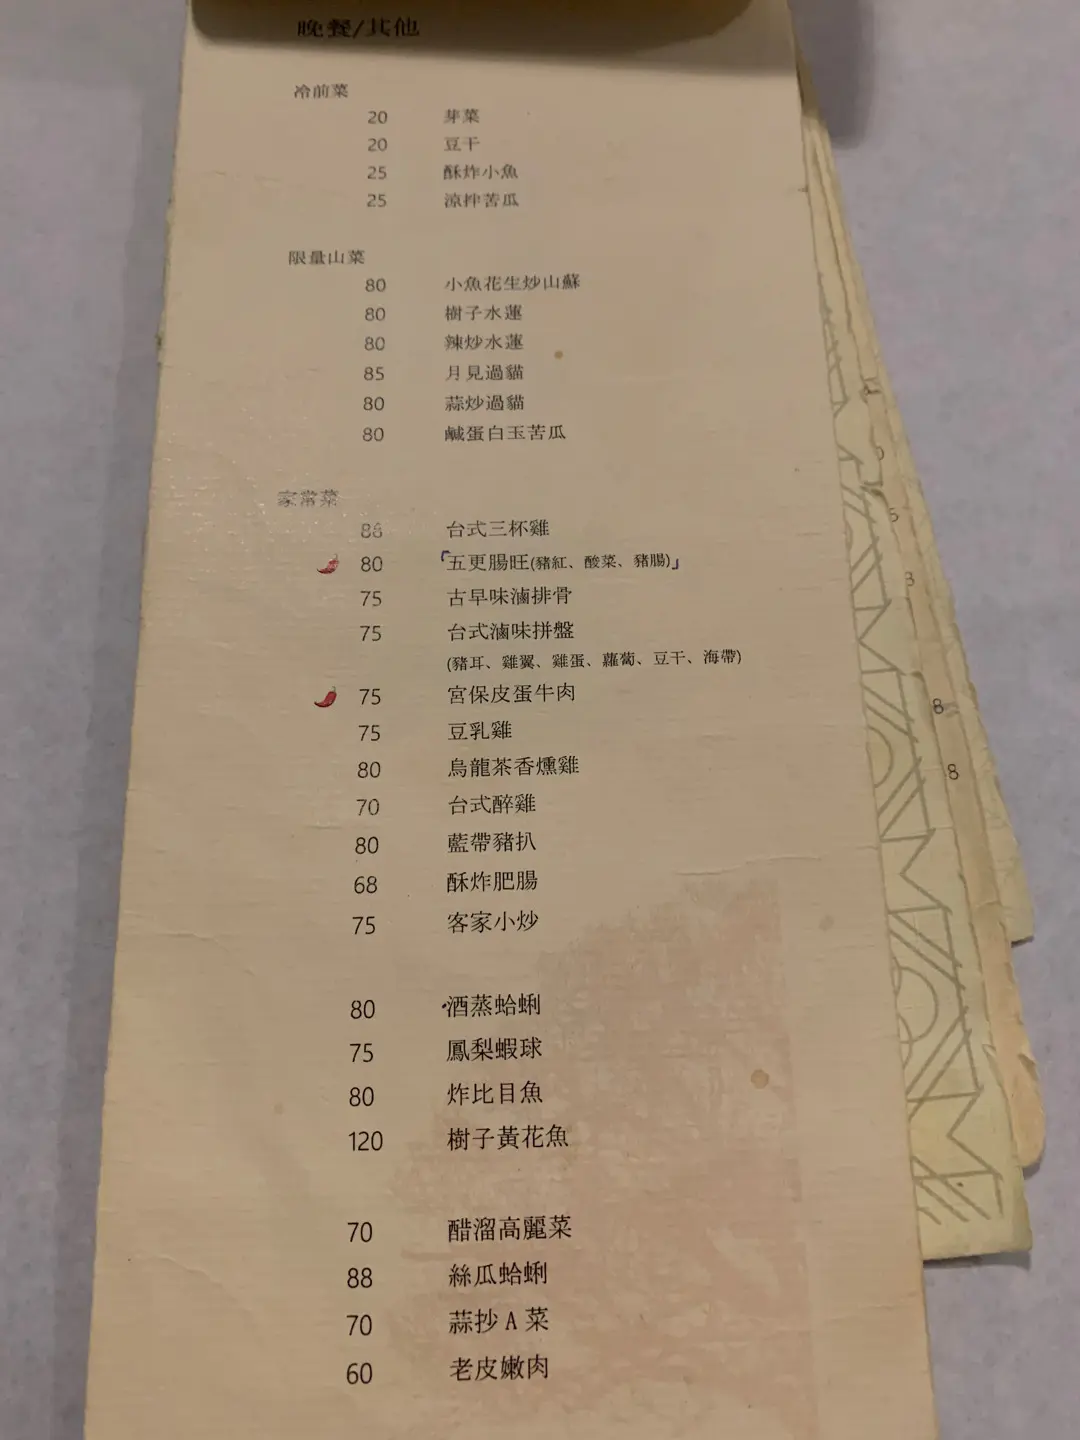 晚餐/其他
冷前菜
20 芽菜
20 豆干
25 酥炸小魚
25 涼拌苦瓜
限量山菜
80 小魚花生炒山蘇
80 樹子水蓮
80 辣炒水蓮
85 月見過貓
80 蒜炒過貓
80 鹹蛋白玉苦瓜
家常菜
88 台式三杯雞
80 「五更腸旺(豬紅、酸菜、豬腸)」
75 古早味滷排骨
75 台式滷味拼盤
(豬耳、雞翼、雞蛋、蘿蔔、豆干、海帶)
75 宮保皮蛋牛肉
75 豆乳雞
80 烏龍茶香燻雞
70 台式醉雞
80 藍帶豬扒
68 酥炸肥腸
75 客家小炒
80 酒蒸蛤蜊
75 鳳梨蝦球
80 炸比目魚
120 樹子黃花魚
70 醋溜高麗菜
88 絲瓜蛤蜊
70 蒜抄A菜
60 老皮嫩肉
8
8